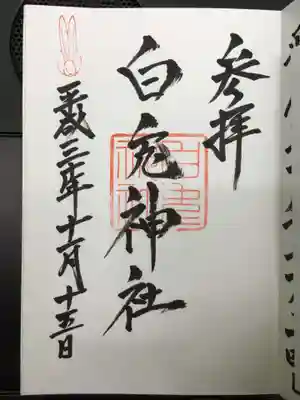 参拝
白兎神社
平成三十年十一月十五日